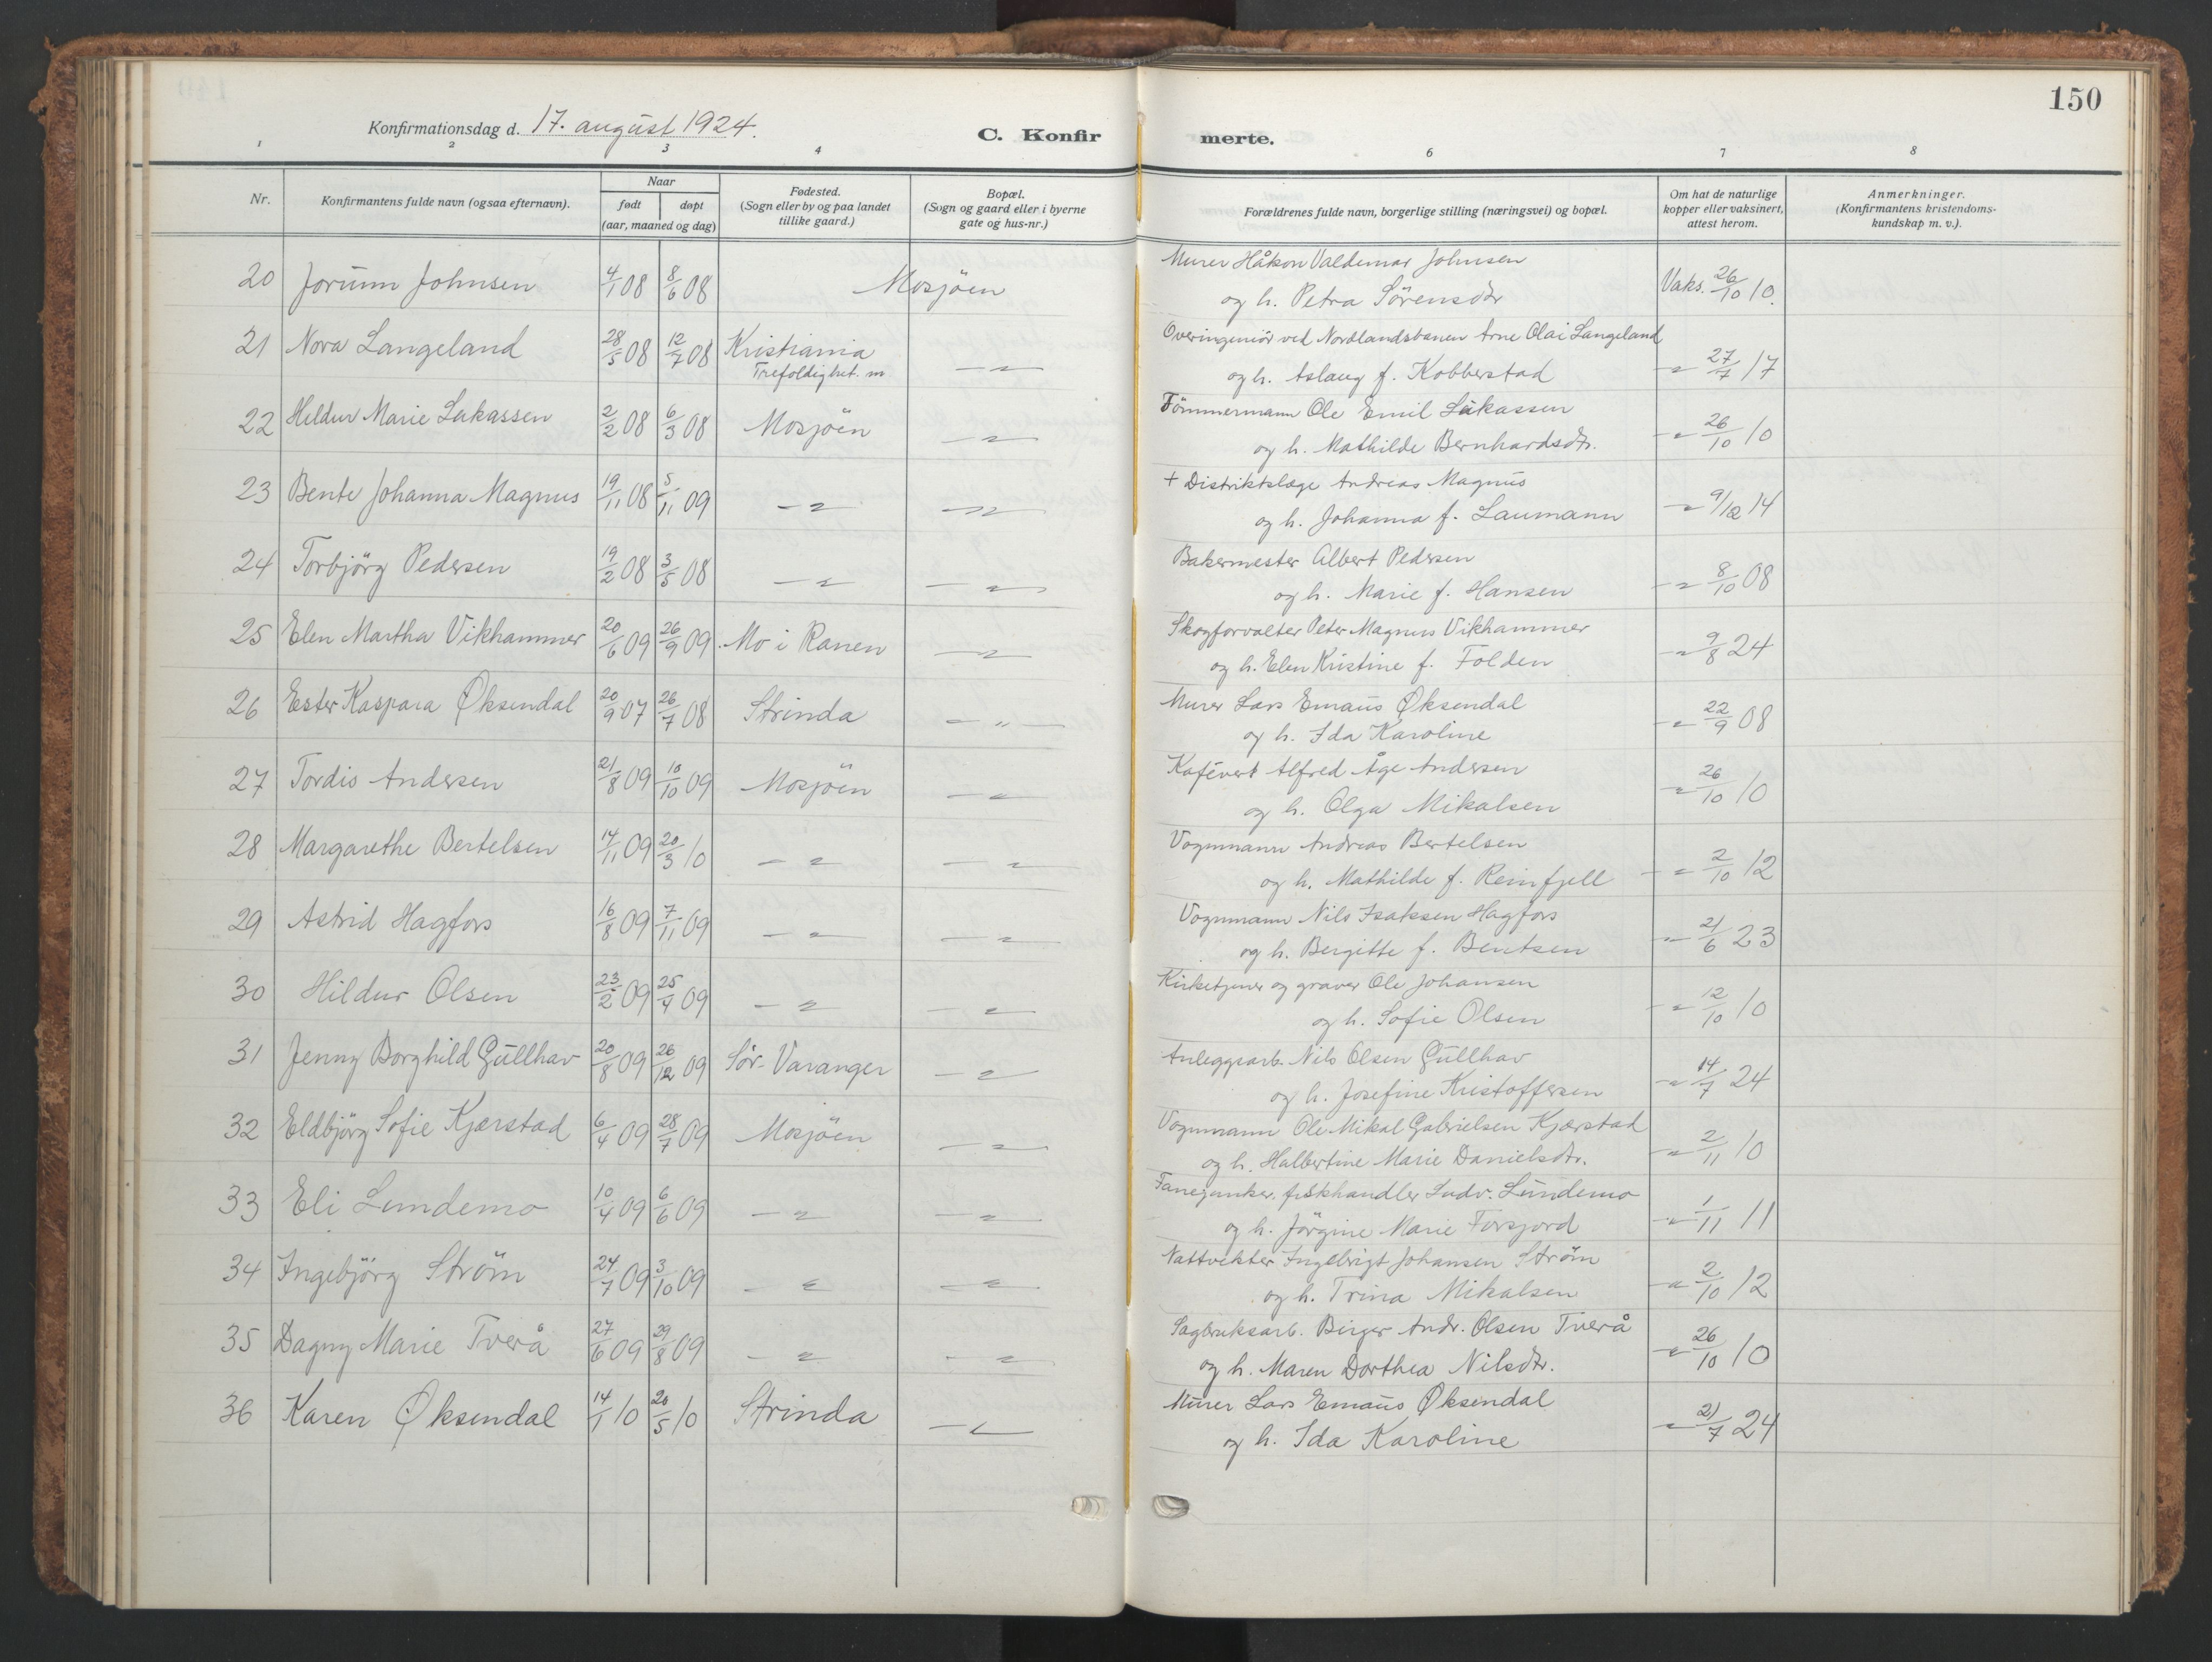 150
Konfirmationsdag d. 17. august 1924.
C. Konfir merte.
1 2 3 4 6 7 8
Nr.
Konfirmantens fulde navn (ogsaa efternavn).
Naar
født døpt
(aar, maaned og dag)
Fødested.
(Sogn eller by og paa landet
tillike gaard.)
Bopæl.
(Sogn og gaard eller i byerne
gate og hus-nr.)
Forældrenes fulde navn, borgerlige stilling (næringsvei) og bopæl.
Om hat de naturlige
kopper eller vaksinert,
attest herom.
Anmerkninger.
(Konfirmantens kristendoms-
kundskap m. v.).
Murer Håkon Valdemar Johnsen
20 Jorunn Johnsen 4/1 08 8/6 08 Mosjöen og h. Petra Sörensdtr Vaks. 26/10 10.
Overingeniör ved Nordlandsbanen Arne Olai Langeland
21 Nora Langeland 28/5 08 12/7 08 Kristiania — " — og h. Aslaug f. Kobberstad — " — 27/7 17
Trefoldighet. m
Tömmermann Ole Emil Lukassen
22 Heldur Marie Lukassen 2/2 08 6/3 08 Mosjöen — " — og h. Mathilde Bernhardsdtr. — " — 26/10 10
+ Distriktslæge Andreas Magnus
23 Bente Johanna Magnus 19/11 08 5/11 09 — " — — " — og h. Johanna f. Laumann — " — 9/12 14
Bakermester Albert Pedersen
24 Torbjörg Pedersen 19/2 08 3/5 08 — " — — " — og h. Marie f. Hansen — " — 8/10 08
Skogforvalter Peter Magnus Vikhammer
25 Elen Martha Vikhammer 20/6 09 26/9 09 Mo i Ranen — " — og h. Elen Kristine f. Folden — " — 9/8 24
Murer Lars Emaus Øksendal
26 Ester Kaspara Øksendal 20/9 07 26/7 08 Strinda — " — og h. Ida Karoline — " — 22/9 08
Kafévert Alfred Åge Andersen
27 Tordis Andersen 21/8 09 10/10 09 Mosjöen — " — og h. Olga Mikalsen — " — 26/10 10
Vognmann Andreas Bertelsen
28 Margarethe Bertelsen 14/11 09 20/3 10 — " — — " — og h. Mathilde f. Reinfjell — " — 2/10 12
Vognmann Nils Isaksen Hagfors
29 Astrid Hagfors 16/8 09 7/11 09 — " — — " — og h. Bergitte f. Bentsen — " — 21/6 23
Kirketjener og graver Ole Johansen
30 Hildur Olsen 23/2 09 25/4 09 — " — — " — og h. Sofie Olsen — " — 12/10 10
Anleggsarb. Nils Olsen Gullhav
31 Jenny Borghild Gullhav 20/8 09 26/12 09 Sör-Varanger — " — og h. Josefine Kristoffersen — " — 14/7 24
Vognmann Ole Mikal Gabrielsen Kjærstad
32 Eldbjörg Sofie Kjærstad 6/4 09 28/7 09 Mosjöen — " — og h. Halbertine Marie Danielsdtr. — " — 2/11 10
Fanejunker, fiskhandler Ludv. Lundemo
33 Eli Lundemo 10/4 09 6/6 09 — " — — " — og h. Jörgine Marie Forsjord — " — 1/11 11
Nattvekter Ingebrigt Johansen Ström
34 Ingebjörg Ström 24/7 09 3/10 09 — " — — " — og h. Trina Mikalsen — " — 2/10 12
Sagbruksarb. Birger Andr. Olsen Tverå
35 Dagny Marie Tverå 27/6 09 29/8 09 — " — — " — og h. Maren Dorthea Nilsdtr. — " — 26/10 10
Murer Lars Emaus Øksendal
36 Karen Øksendal 14/1 10 20/5 10 Strinda — " — og h. Ida Karoline — " — 21/7 24